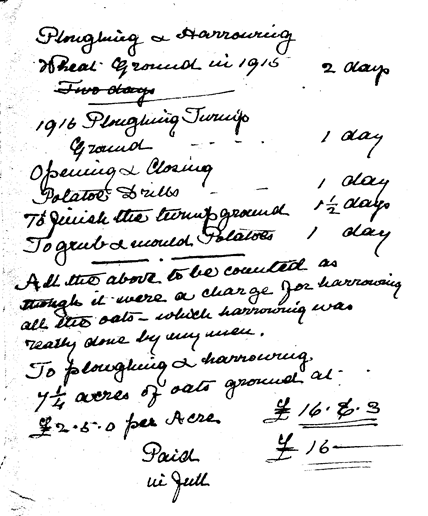 Ploughing & Harrowing
Wheat Ground in 1915 2 days
Two days
1916 Ploughing Turnip
Ground - - - - 1 day
Opening & Closing
Potatoe Drills - - 1 day
To finish the turnip ground 1½ days
To grub & mould Potatoes 1 day
All the above to be counted as
though it were a charge for harrowing
all the oats - which harrowing was
really done by my men.
To ploughing & harrowing
7¼ acres of oats ground at
£2.5.0 per Acre £16.6.3
Paid £16—
in full